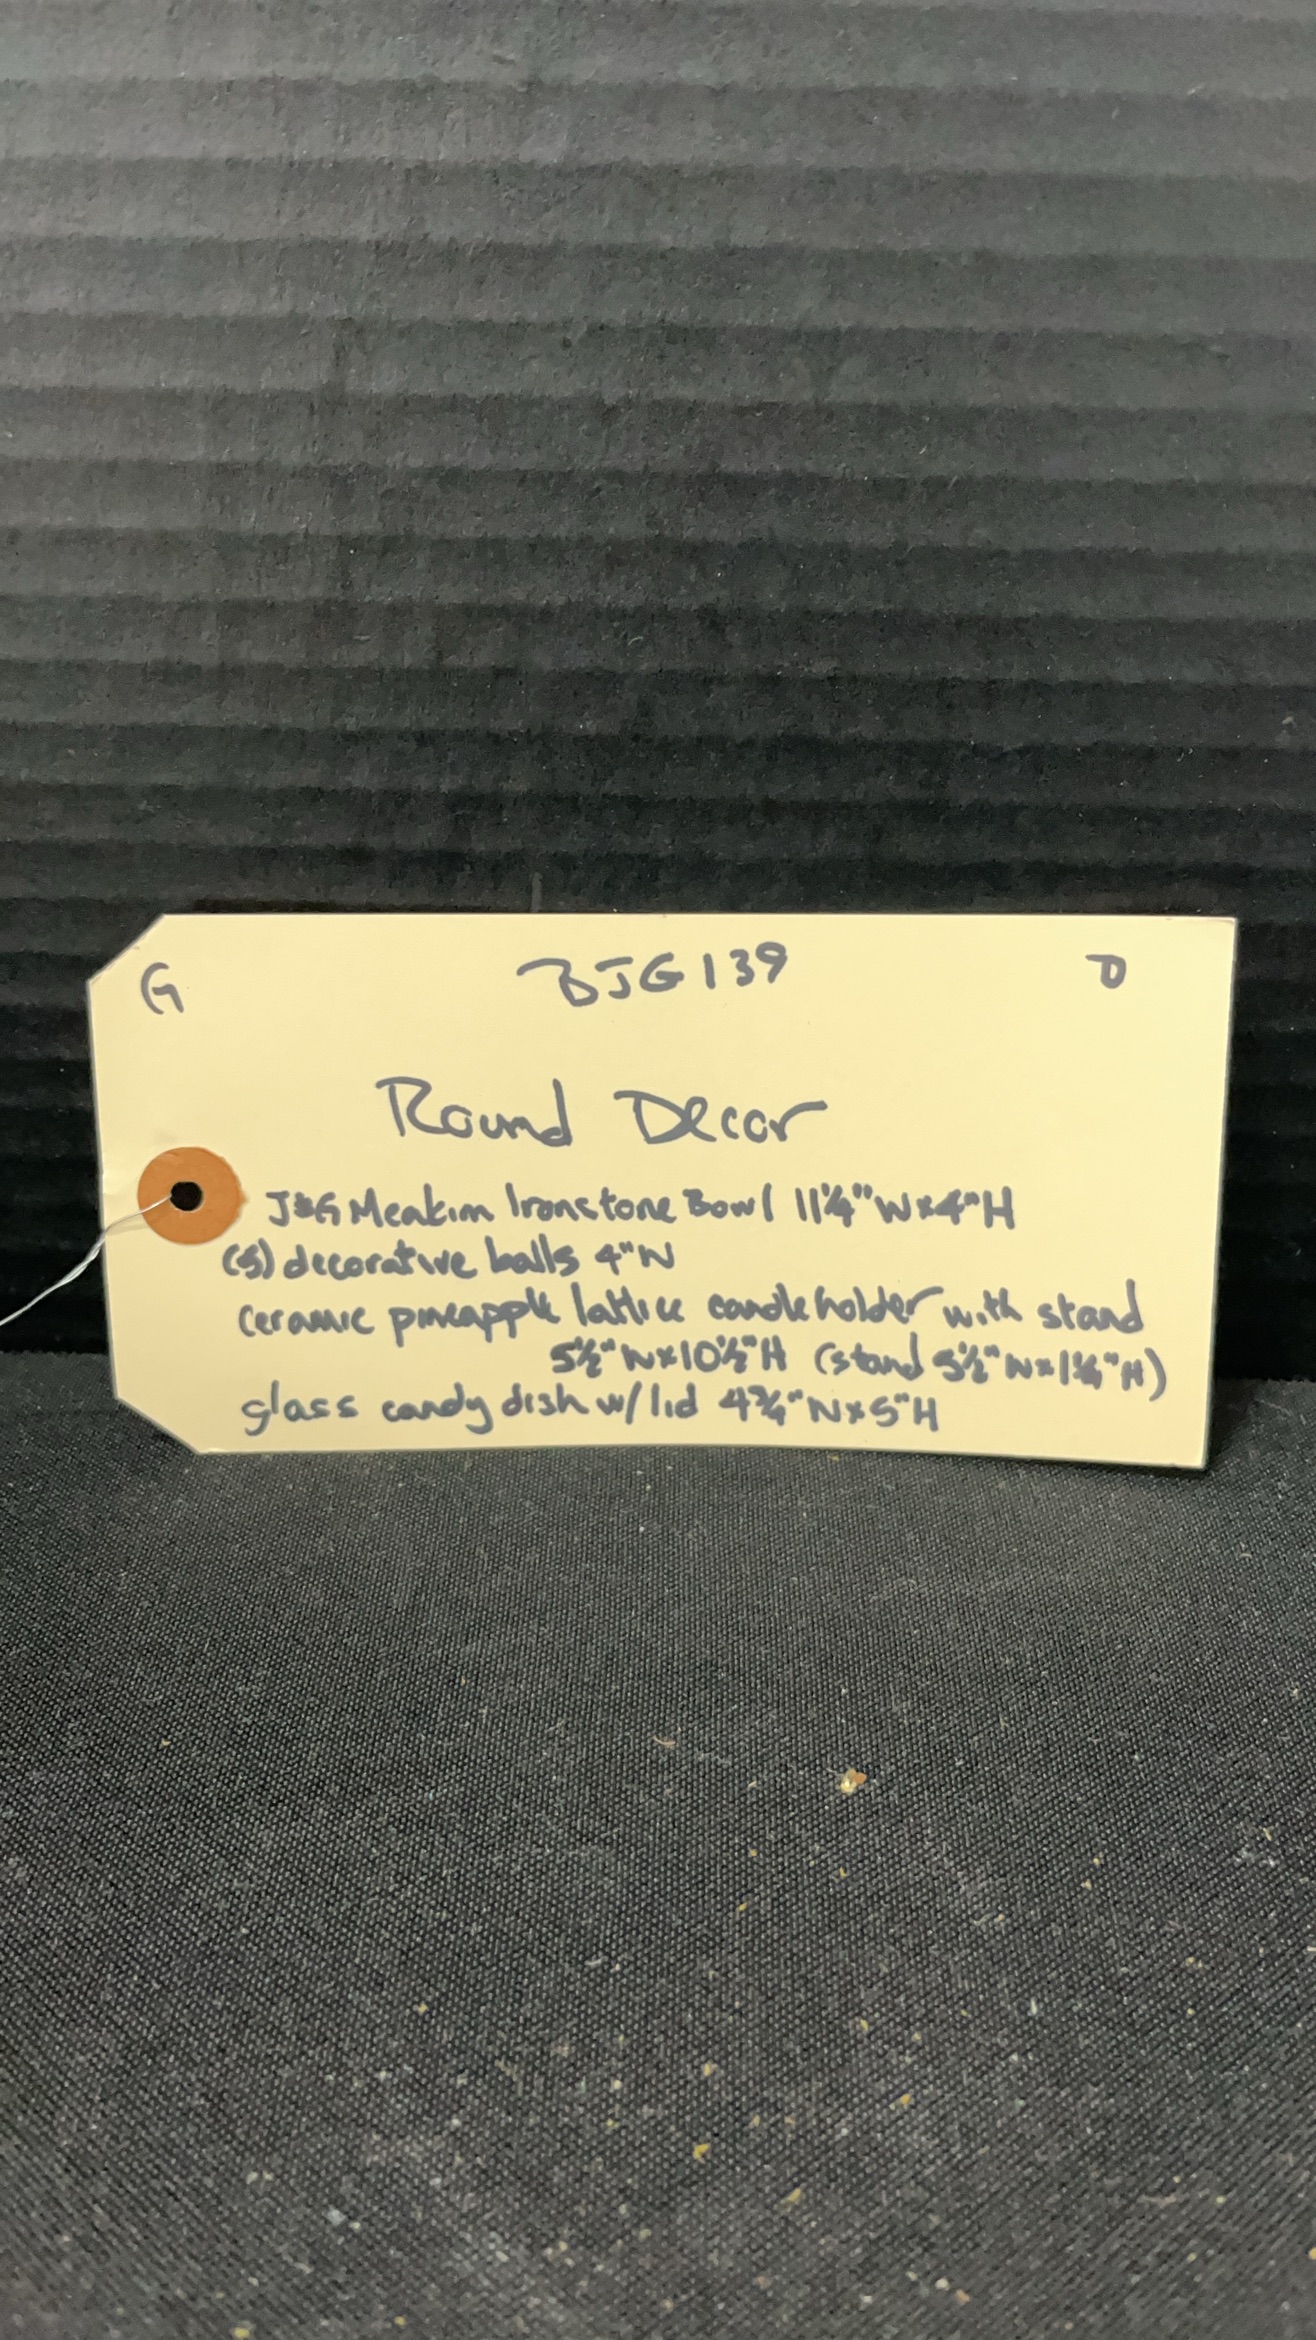 G BJG139 D
Round Decor
J&G Meakin Ironstone Bowl 11¼"W x 4"H
(5) decorative balls 4"W
ceramic pineapple lattice candleholder with stand
5½"W x 10½"H (stand 5½"W x 1¼"H)
glass candy dish w/ lid 4¾"W x 5"H